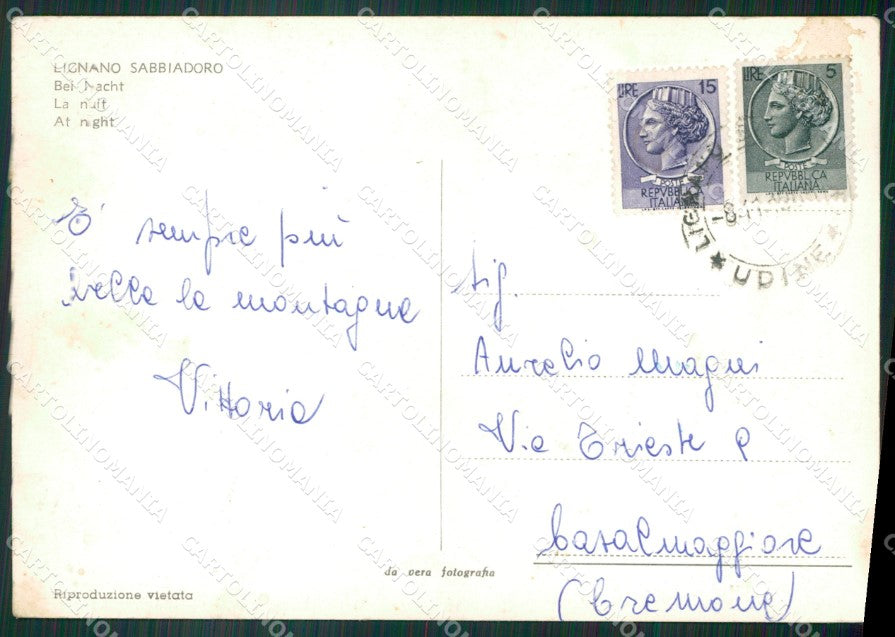 LIGNANO SABBIADORO
Bei Nacht
La nuit
At night
LIRE 15
POSTE
REPVBBLICA
ITALIANA
LIRE 5
POSTE
REPVBBLICA
ITALIANA
-8-11
★ UDINE ★
E' sempre più
bella la montagna
Vittoria
Sig.
Aurelio Magni
Via Trieste
Casalmaggiore
(Cremona)
da vera fotografia
Riproduzione vietata
CARTOLINOMANIA